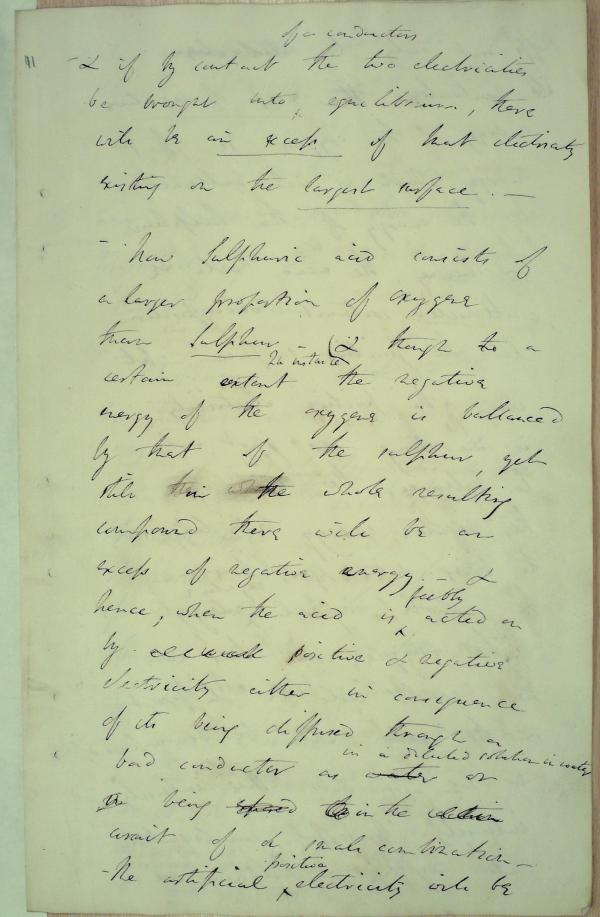 of or conductors
91
- & if by contact the two electricities
be brought into equilibrium, there
will be an excess of that electricity
existing on the largest surface. —
- Now Sulphuric acid consists of
a larger proportion of oxygene
than Sulphur - & though to a
In instance
certain extent the negative
energy of the oxygene is ballanced
by that of the sulphur, yet
still in the whole resulting
compound there will be an
excess of negative energy. - &
feebly
hence, when the acid is acted on
by positive & negative
electricity either in consequence
of its being diffused through a
in a diluted solution in water
bad conductor as water or
being in the
circuit of a small combination -
positive
- the artificial electricity will be